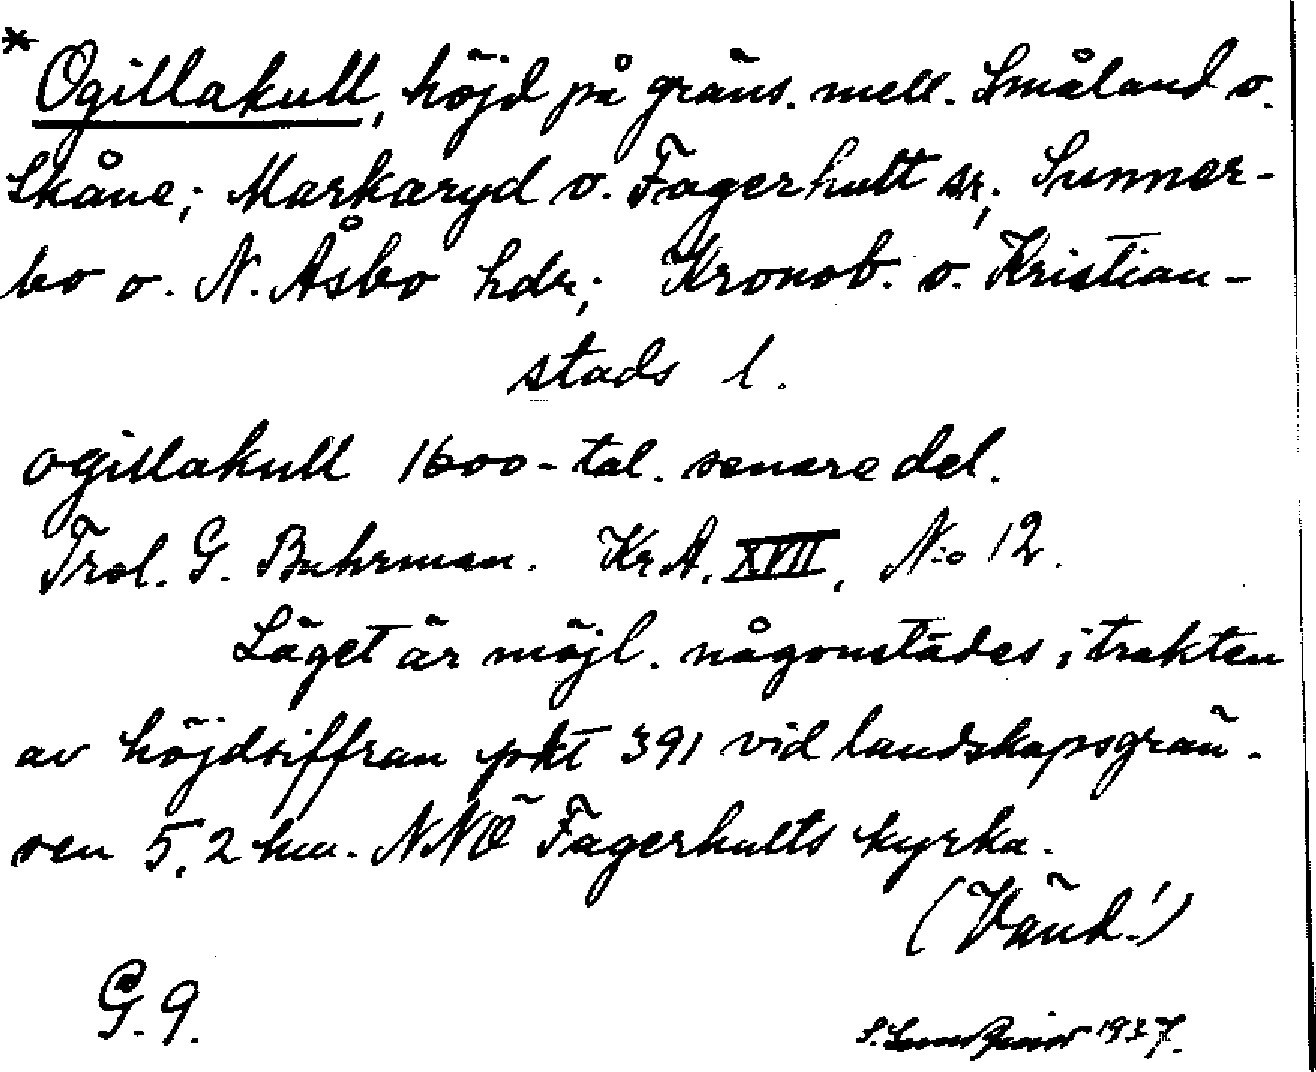 * Ogillakull, höjd på gräns. mell. Småland o.
Skåne; Markaryd o. Fagerhult sr; Sunner-
bo o. N. Åsbo hdr; Kronob. o. Kristian-
stads l.
ogillakull 1600-tal. senare del.
Trol. G. Buhrman. KrA. XVII, N:o 12.
Läget är möjl. någonstädes i trakten
av höjdsiffran pkt 391 vid landskapsgrän-
sen 5,2 km. NNÖ Fagerhults kyrka.
(Vänd!)
G. 9.
S. 1937.